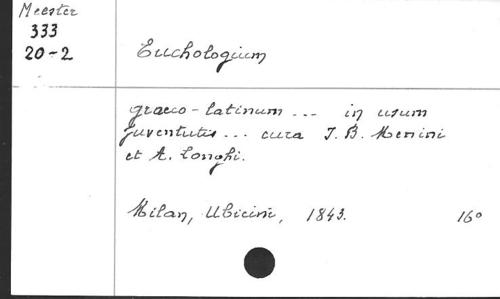 Meester
333
20-2
Euchologium
graeco-latinum ... in usum
juventutis ... cura J. B. Menini
et A. Longhi.
Milan, Ubicini, 1843. 16°